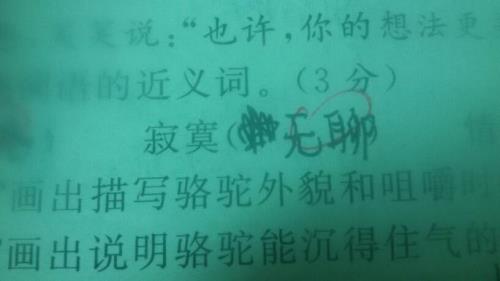 说:“也许,你的想法更
词语的近义词。(3分)
寂寞(无聊 情
画出描写骆驼外貌和咀嚼时
画出说明骆驼能沉得住气的